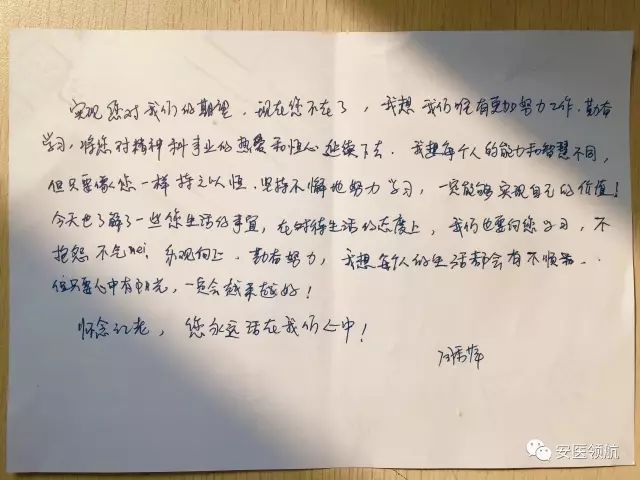 实现您对我们的期望。现在您不在了，我想我们唯有更加努力工作、勤奋
学习，将您对精神科事业的热爱和恒心延续下去。我想每个人的能力和智慧不同，
但只要像您一样持之以恒、坚持不懈地努力学习，一定能够实现自己的价值！
今天也了解了一些您生活的事宜，在对待生活的态度上，我们也要向您学习，不
抱怨 不气nei、乐观向上、勤奋努力，我想每个人的生活都会有不顺
但只要心中有阳光，一定会越来越好！
怀念江老，您永远活在我们心中！
安医领航